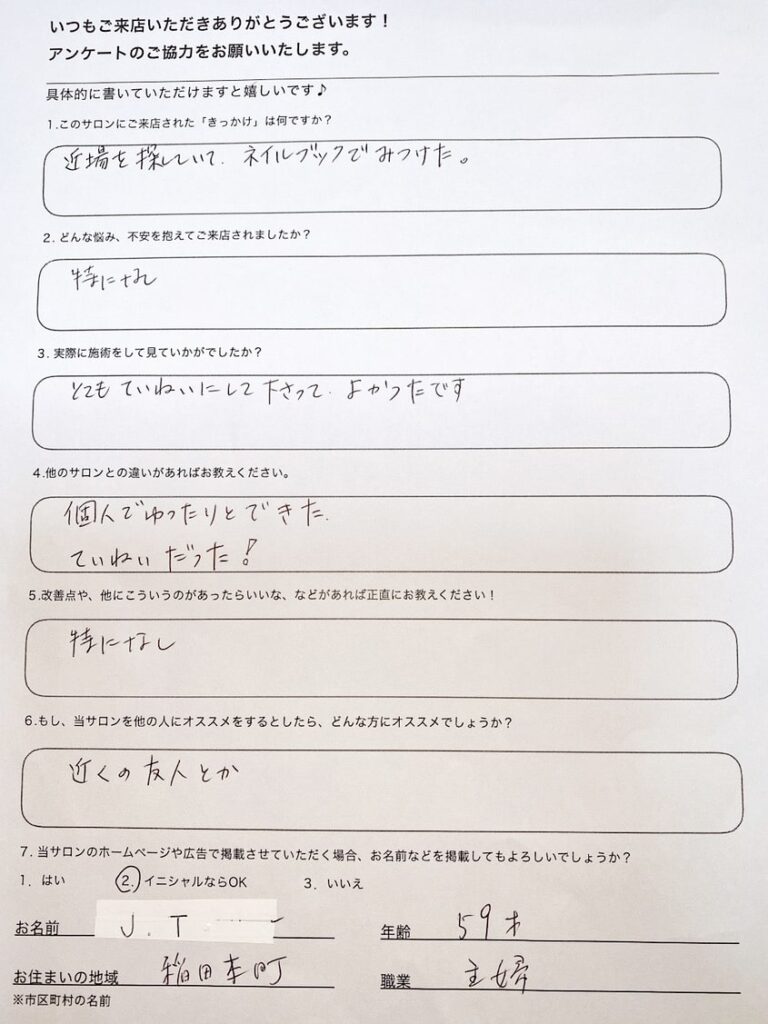 いつもご来店いただきありがとうございます！
アンケートのご協力をお願いいたします。
具体的に書いていただけますと嬉しいです♪
1.このサロンにご来店された「きっかけ」は何ですか？
近場を探していて、ネイルブックでみつけた。
2. どんな悩み、不安を抱えてご来店されましたか？
特になし
3. 実際に施術をして見ていかがでしたか？
とても ていねいにして下さって、よかったです
4.他のサロンとの違いがあればお教えください。
個人でゆったりとできた、
ていねいだった！
5.改善点や、他にこういうのがあったらいいな、などがあれば正直にお教えください！
特になし
6.もし、当サロンを他の人にオススメをするとしたら、どんな方にオススメでしょうか？
近くの友人とか
7. 当サロンのホームページや広告で掲載させていただく場合、お名前などを掲載してもよろしいでしょうか？
1. はい 2. イニシャルならOK 3. いいえ
お名前 J.T 年齢 59才
お住まいの地域 稲田本町 職業 主婦
※市区町村の名前